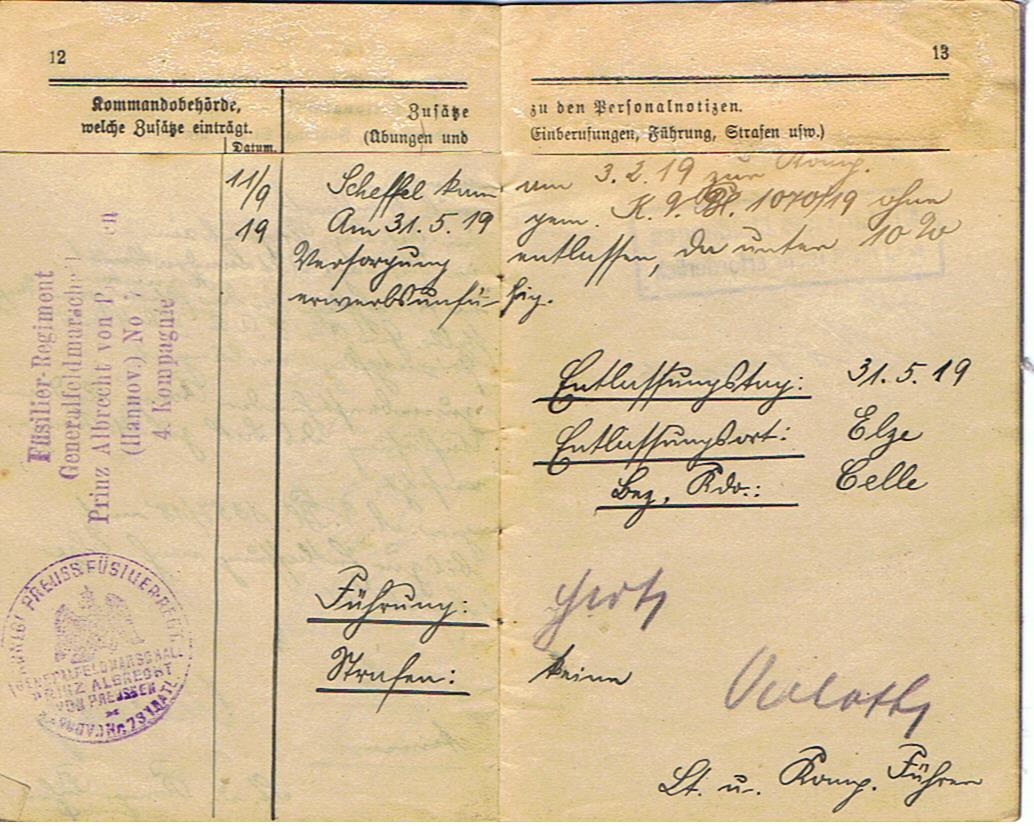 12
13
Kommandobehörde,
welche Zusätze einträgt.
Datum.
Zusätze zu den Personalnotizen.
(Übungen und Einberufungen, Führung, Strafen usw.)
11/9 Scheffel kam am 3.2.19 zur Komp.
19 Am 31.5.19 gem. K. V. Bl. 1070/19 ohne
Versorgung entlassen, da unter 10 %
erwerbsunfähig.
Füsilier-Regiment
Generalfeldmarschall
Prinz Albrecht von
(Hannov.) No
4. Kompagnie
Entlassungstag: 31.5.19
Entlassungsort: Elze
Bez. Kdo.: Celle
KÖNIGL. PREUSS. FÜSILIER-REGT.
GENERALFELDMARSCHALL
PRINZ ALBRECHT
VON PREUSSEN
Nr. 73
Führung:
Strafen: keine
Lt. u. Komp. Führer